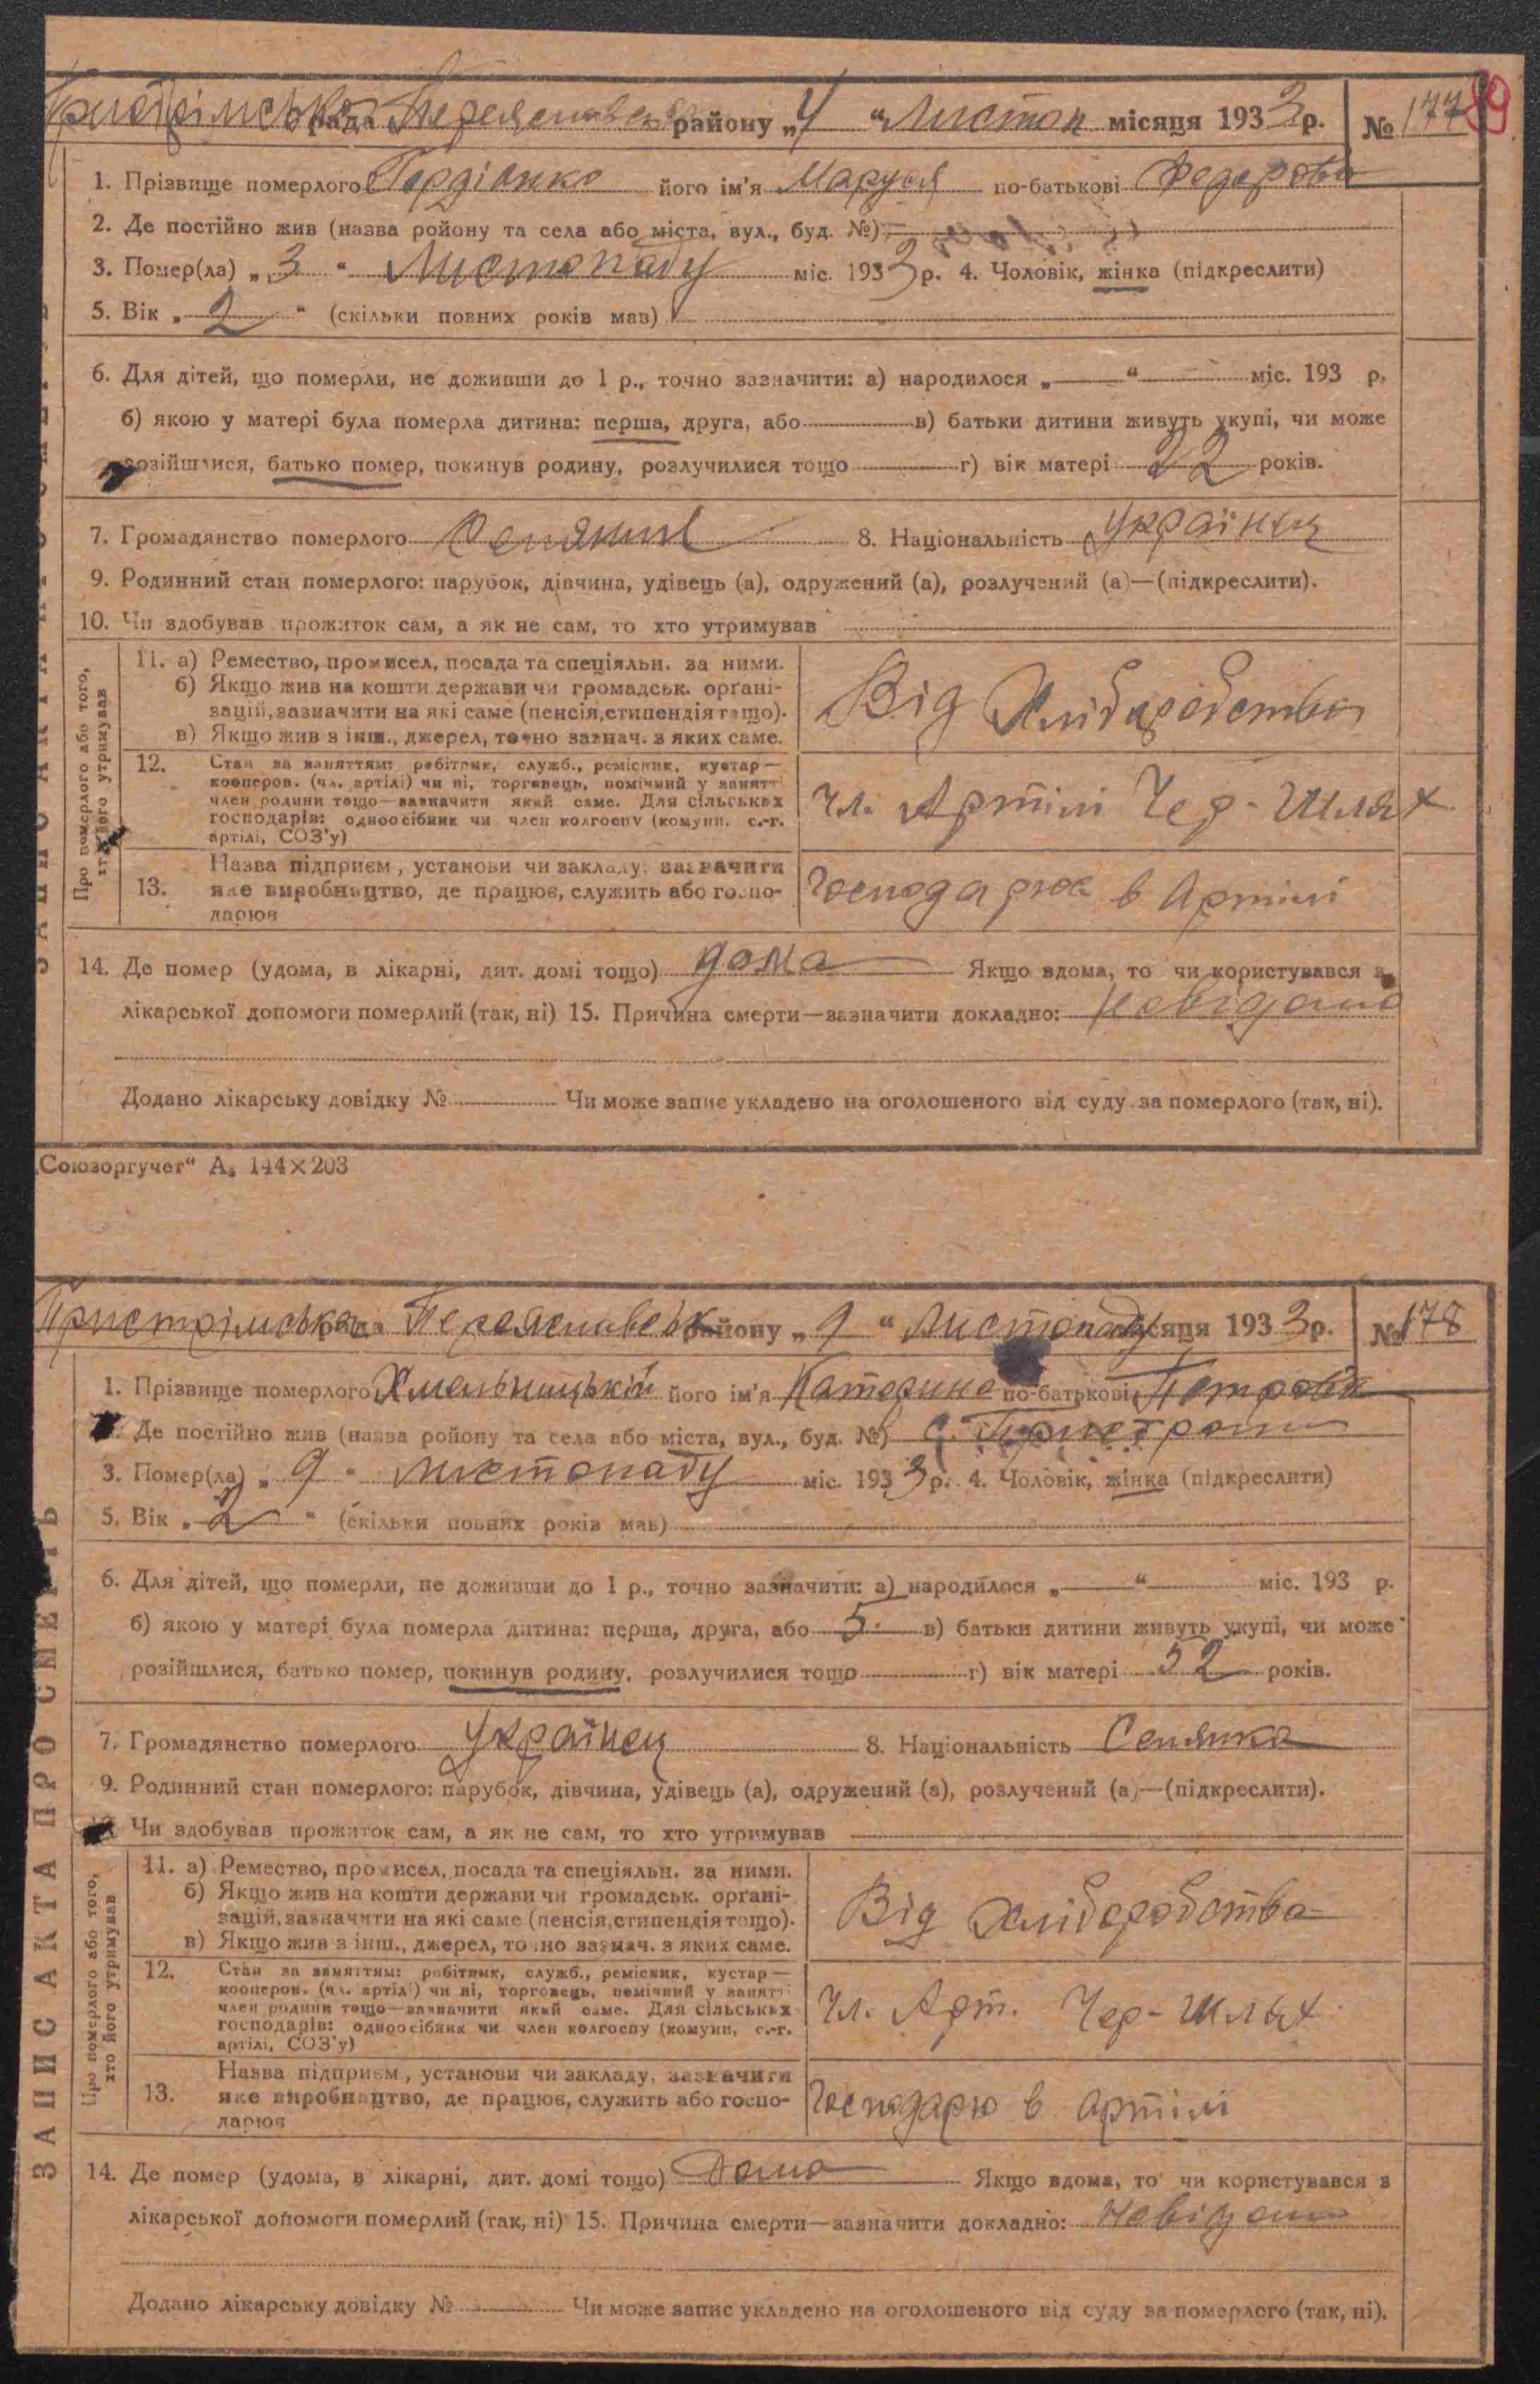 Пристрімська рада Переяславськ району „4“ Листоп місяця 1933 р. № 177 89
1. Прізвище померлого Гордієнко його ім'я Маруся по-батькові Федоровн
2. Де постійно жив (назва ройону та села або міста, вул., буд. №)
3. Помер(ла) „3“ Листопаду міс. 1933 р. 4. Чоловік, жінка (підкреслити)
5. Вік „2“ (скільки повних років мав)
6. Для дітей, що померли, не доживши до 1 р., точно зазначити: а) народилося „—“ міс. 193 р.
б) якою у матері була померла дитина: перша, друга, або в) батьки дитини живуть укупі, чи може
розійшлися, батько помер, покинув родину, розлучилися тощо г) вік матері 22 років.
7. Громадянство померлого Селянин 8. Національність Українець
9. Родинний стан померлого: парубок, дівчина, удівець (а), одружений (а), розлучений (а)—(підкреслити).
10. Чи здобував прожиток сам, а як не сам, то хто утримував
Про померлого або того,
хто його утримував
11. а) Ремество, промисел, посада та спеціяльн. за ними.
б) Якщо жив на кошти держави чи громадськ. орґані-
зацій, зазначити на які саме (пенсія, стипендія тощо).
в) Якщо жив з інш., джерел, точно зазнач. з яких саме.
Від Хліборобства
12. Стан за заняттям: робітник, служб., ремісник, кустар—
кооперов. (чл. артілі) чи ні, торговець, помічний у занятті
член родини тощо—зазначити який саме. Для сільських
господарів: одноосібник чи член колгоспу (комуни, с.-г.
артілі, СОЗ'у)
Чл. Артілі Чер-Шлях
13. Назва підприєм, установи чи закладу, зазначити
яке виробництво, де працює, служить або госпо-
дарює
Господарює в Артілі
14. Де помер (удома, в лікарні, дит. домі тощо) дома Якщо вдома, то чи користувався з
лікарської допомоги померлий (так, ні) 15. Причина смерти—зазначити докладно: невідомо
Додано лікарську довідку № Чи може запис укладено на оголошеного від суду за померлого (так, ні).
„Союзоргучет“ А5 144×203
Пристрімська рада Переяславськ району „9“ Листопаду місяця 1933 р. № 178
1. Прізвище померлого Хмельницькій його ім'я Катерина по-батькові Петровн
2. Де постійно жив (назва ройону та села або міста, вул., буд. №) с. Пристроми
3. Помер(ла) „9“ листопаду міс. 1933 р. 4. Чоловік, жінка (підкреслити)
5. Вік „2“ (скільки повних років мав)
6. Для дітей, що померли, не доживши до 1 р., точно зазначити: а) народилося „—“ міс. 193 р.
б) якою у матері була померла дитина: перша, друга, або 5. в) батьки дитини живуть укупі, чи може
розійшлися, батько помер, покинув родину, розлучилися тощо г) вік матері 32 років.
7. Громадянство померлого Українец 8. Національність Селянка
9. Родинний стан померлого: парубок, дівчина, удівець (а), одружений (а), розлучений (а)—(підкреслити).
Чи здобував прожиток сам, а як не сам, то хто утримував
ЗАПИС АКТА ПРО СМЕРТЬ
Про померлого або того,
хто його утримував
11. а) Ремество, промисел, посада та спеціяльн. за ними.
б) Якщо жив на кошти держави чи громадськ. орґані-
зацій, зазначити на які саме (пенсія, стипендія тощо).
в) Якщо жив з інш., джерел, точно зазнач. з яких саме.
Від Хліборобства
12. Стан за заняттям: робітник, служб., ремісник, кустар—
кооперов. (чл. артілі) чи ні, торговець, помічний у занятті
член родини тощо—зазначити який саме. Для сільських
господарів: одноосібник чи член колгоспу (комуни, с.-г.
артілі, СОЗ'у)
Чл. Арт. Чер-Шлях
13. Назва підприєм, установи чи закладу, зазначити
яке виробництво, де працює, служить або госпо-
дарює
Господарю в артілі
14. Де помер (удома, в лікарні, дит. домі тощо) Дома Якщо вдома, то чи користувався з
лікарської допомоги померлий (так, ні) 15. Причина смерти—зазначити докладно: Невідомо
Додано лікарську довідку № Чи може запис укладено на оголошеного від суду за померлого (так, ні).